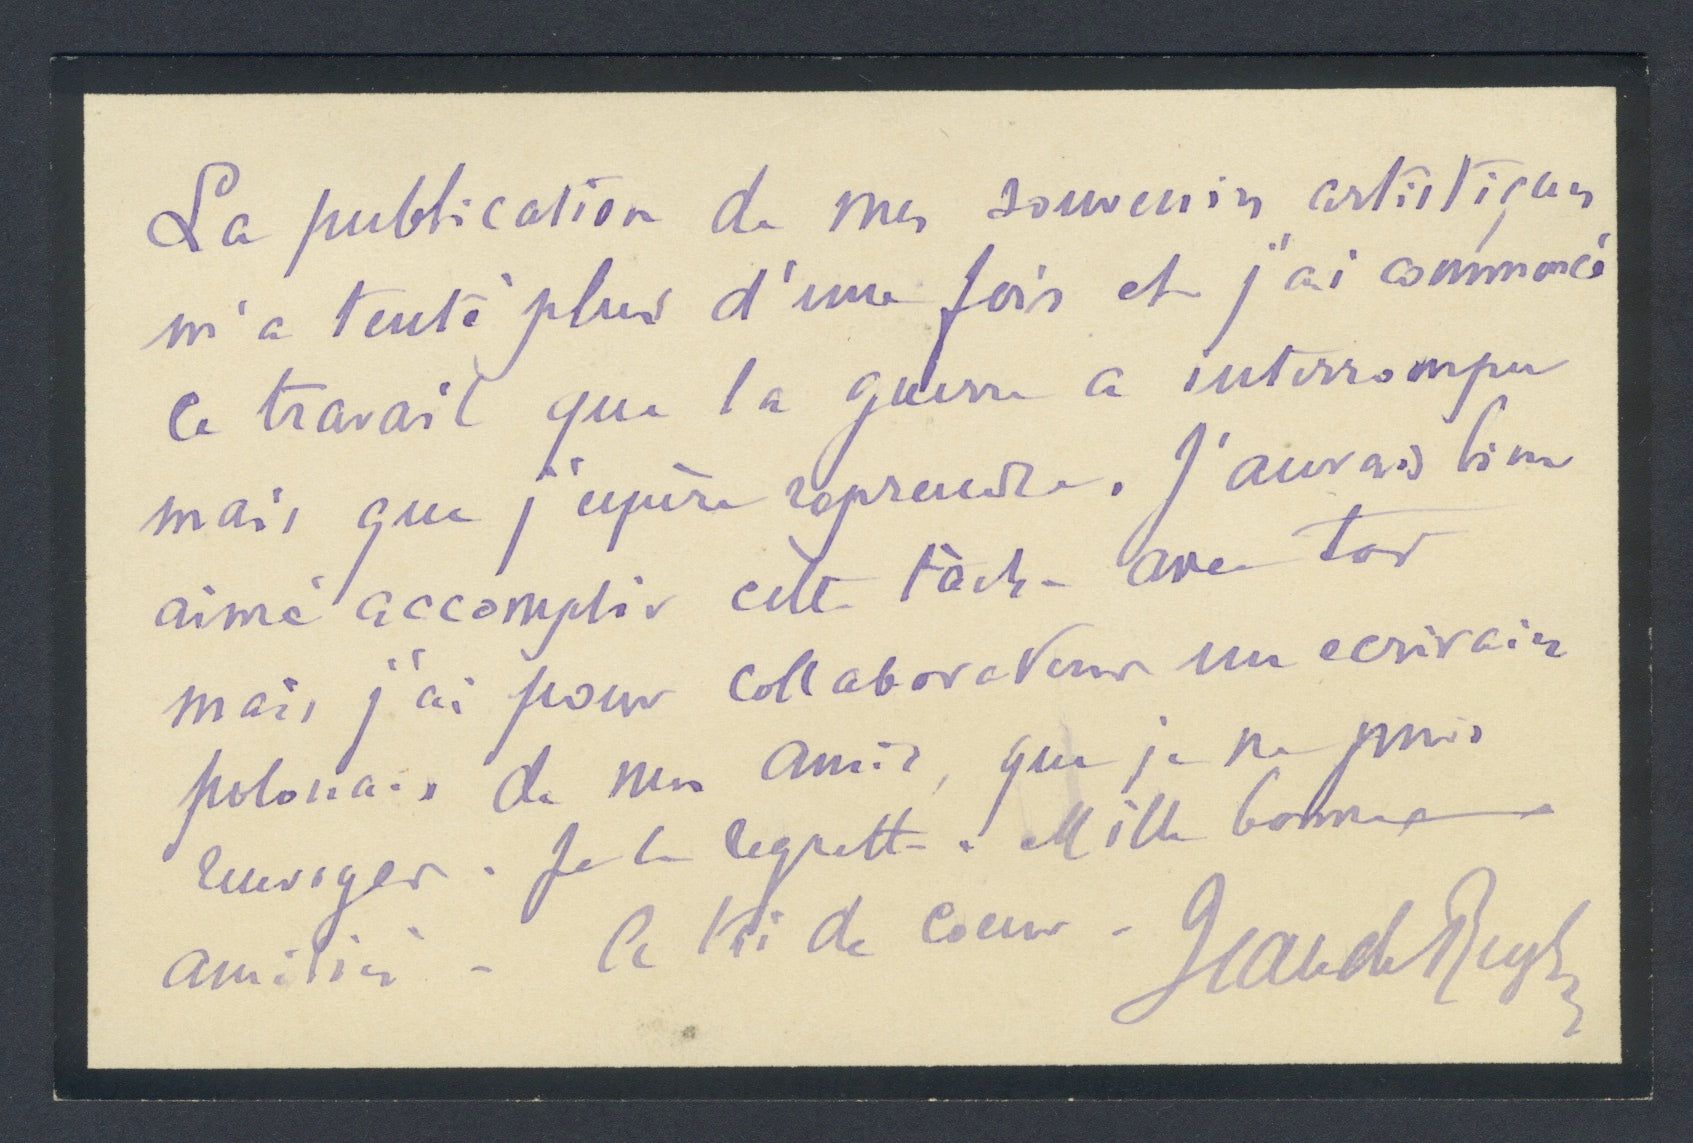 La publication de mes souvenirs artistiques
m'a tenté plus d'une fois et j'ai commencé
ce travail que la guerre a interrompu
mais que j'espère reprendre. J'aurais bien
aimé accomplir cette tâche avec toi
mais j'ai pour collaborateur un ecrivain
polonais de mes amis, que je ne puis
. Je le regrette. Mille bonnes
amitiés - à toi de coeur - Jean de Reszke